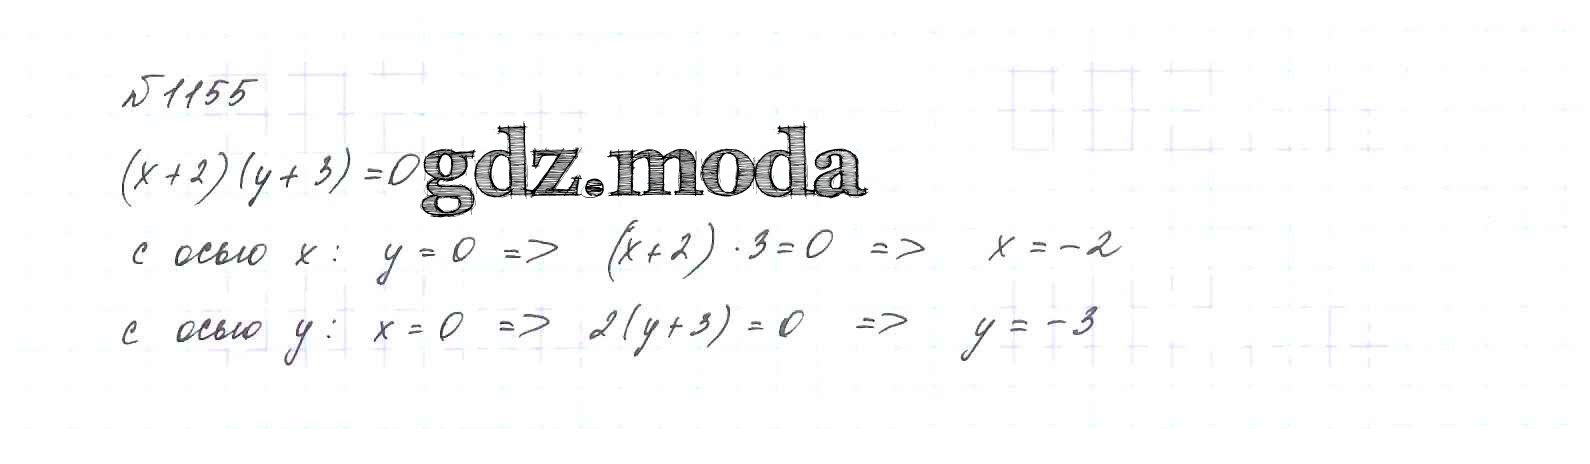 №1155
(x+2)(y+3)=0 gdz.moda
с осью x: y=0 => (x+2)·3=0 => x=-2
с осью y: x=0 => 2(y+3)=0 => y=-3